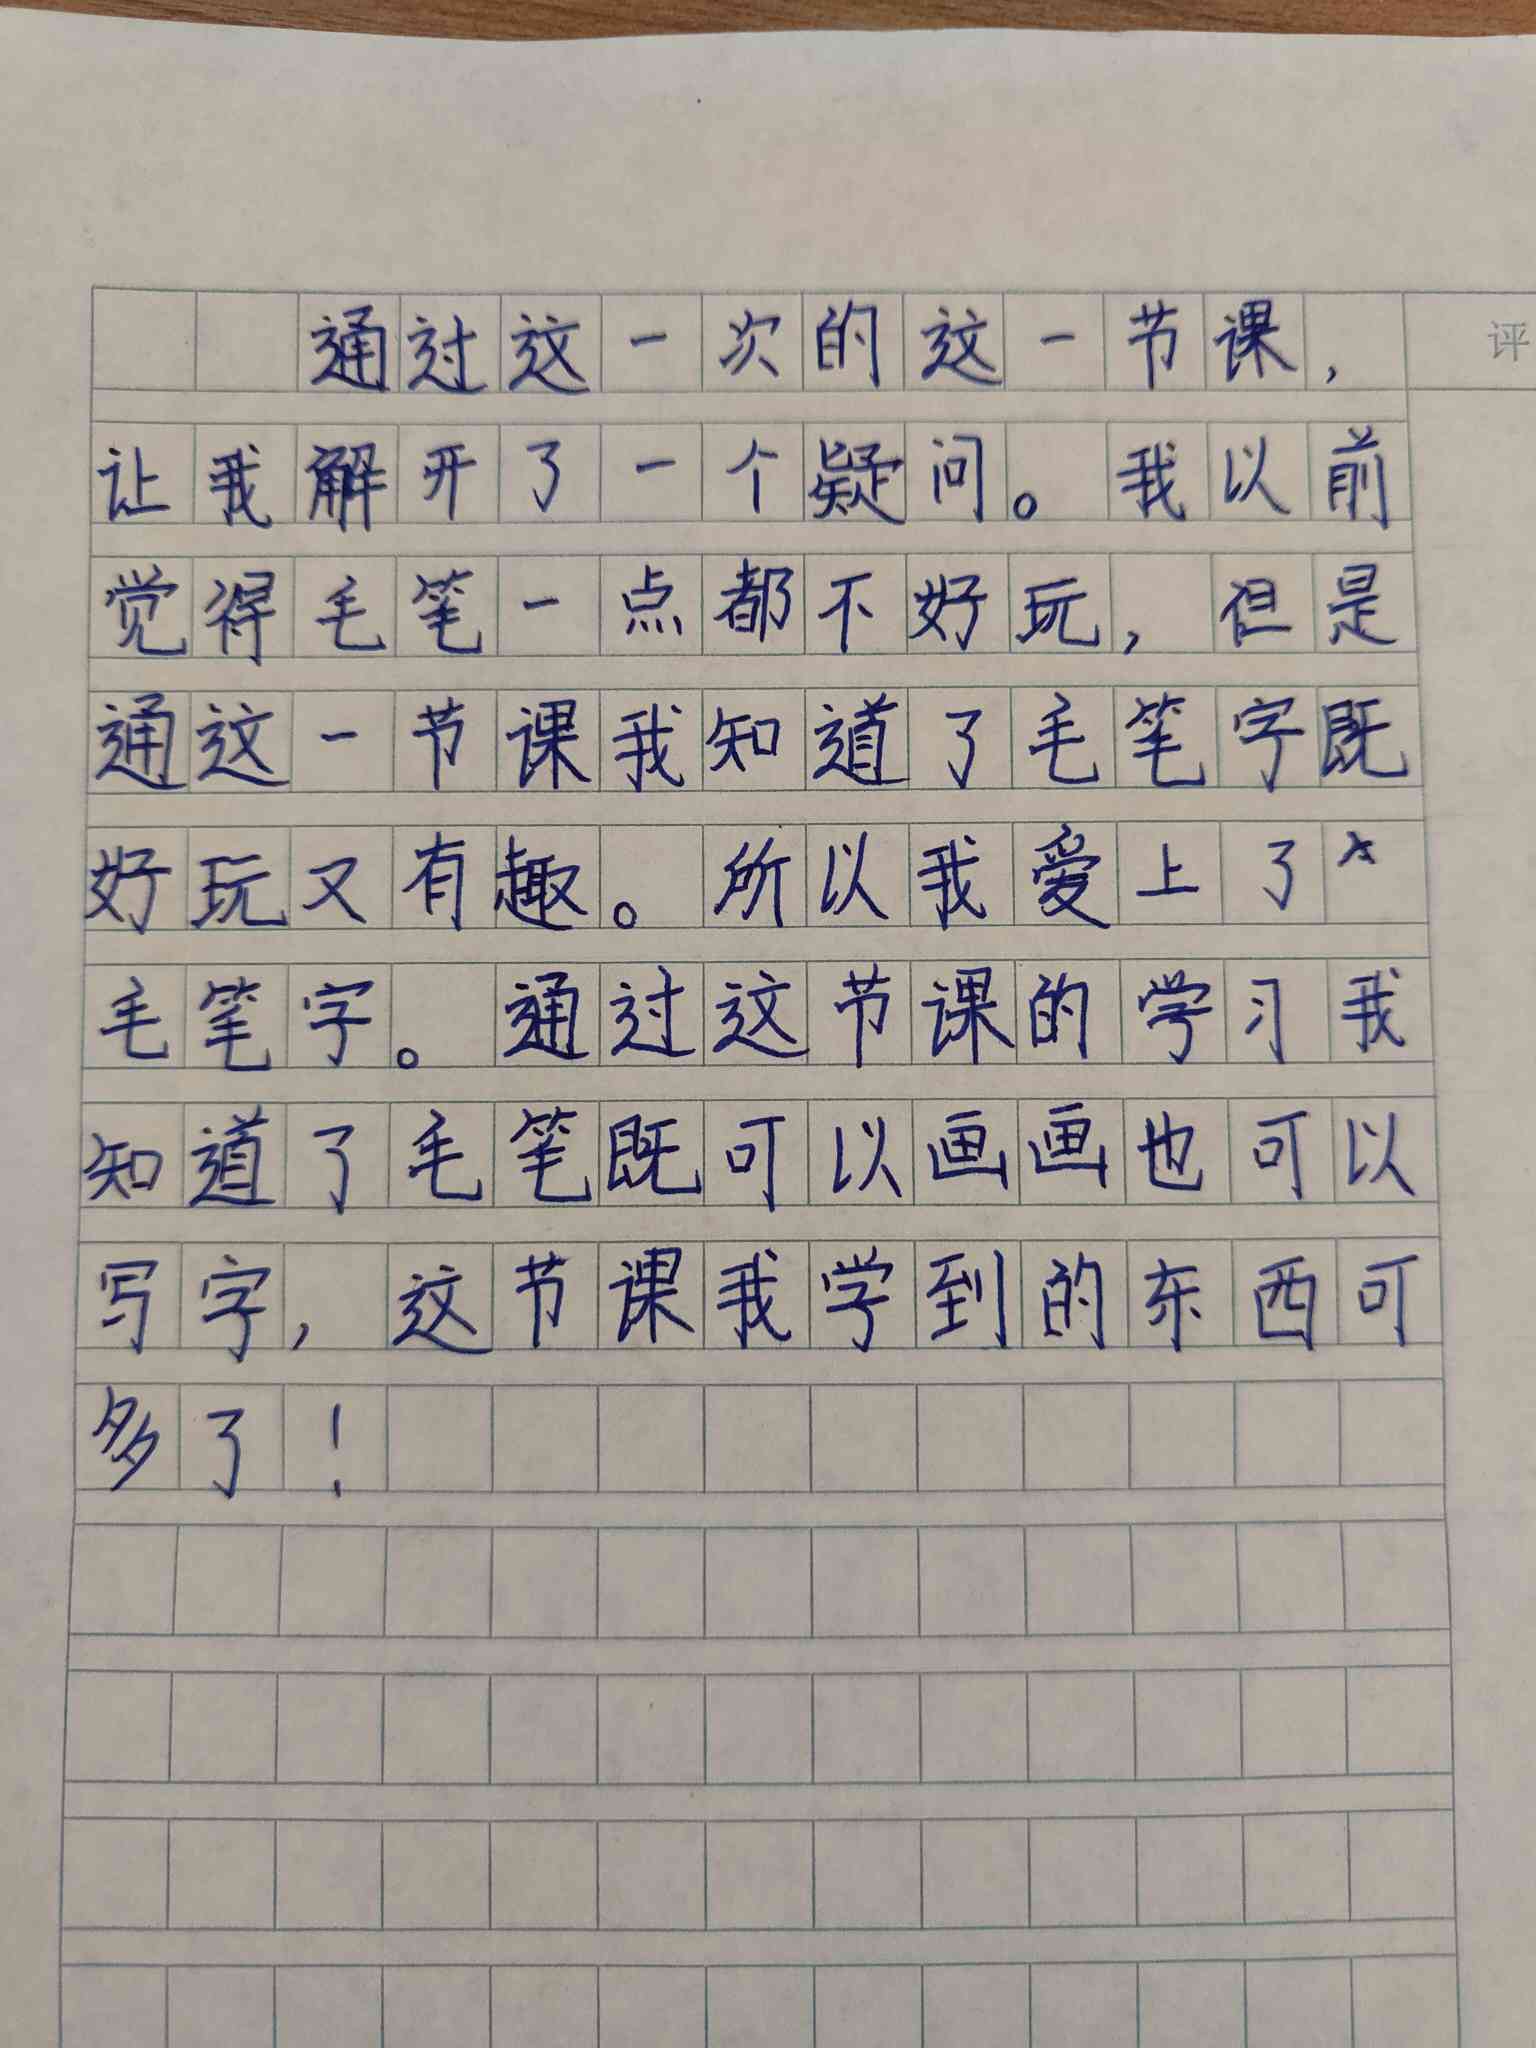 通过这一次的这一节课，
评
让我解开了一个疑问。我以前
觉得毛笔一点都不好玩，但是
通这一节课我知道了毛笔字既
好玩又有趣。所以我爱上了
毛笔字。通过这节课的学习我
知道了毛笔既可以画画也可以
写字，这节课我学到的东西可
多了！